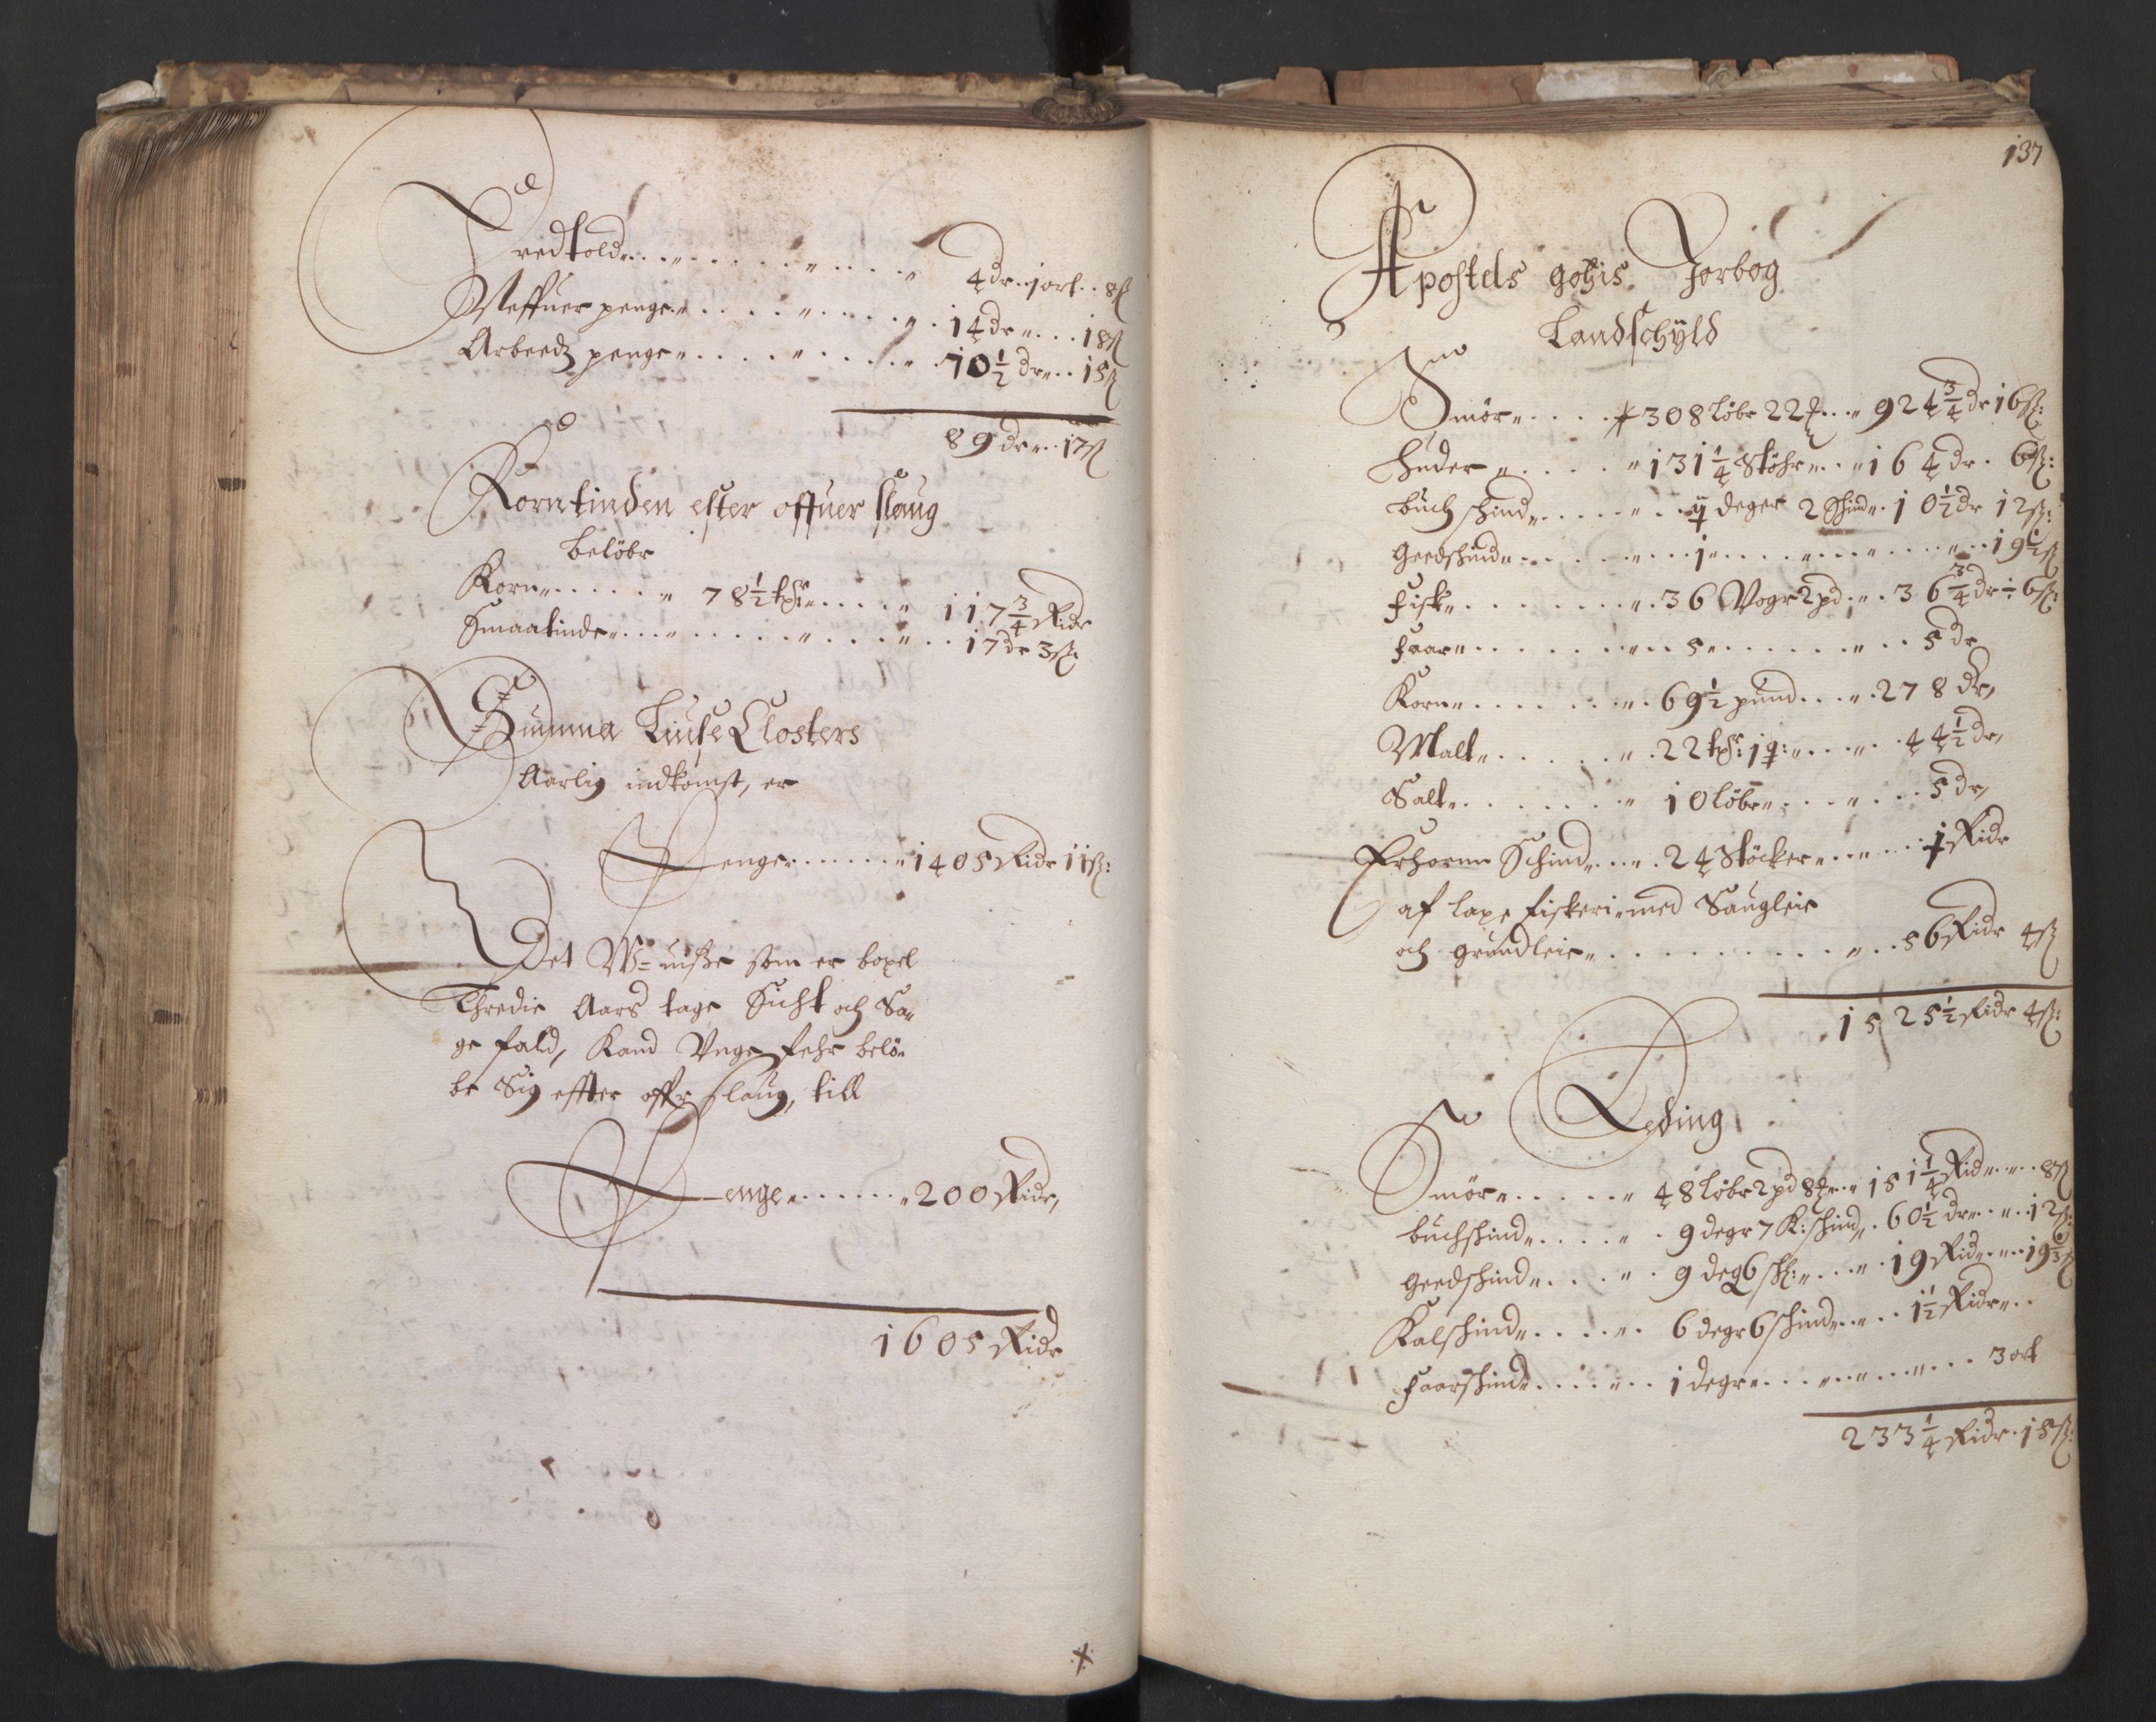 Tredtold 4 dr 1 ort 8 ß
Neffuer penge 14 dr 18 ß
Arbeedz penge 10½ dr 15 ß
89 dr 17 ß
Korntinden efter offuer slaug
belöbr
Korn 78½ 117¾ Ridr
Smaatinde 17 dr 3 ß
Summa Liuse Closters
Aarlig indkomst, er
Penge 1405 Ridr 11 ß
Det W=uisse som er boxel
Thredie Aars tage Sicht och Sa=
ge fald, Kand Vngefehr belö=
be Sig effter offr slaug, till
Penge 200 Ridr
1605 Ridr
137
Apostels gotzis Jorbog
Landschÿld
Smör 308 löbr 22 924¾ dr 16 ß:
Huder 131¼ 164 dr 6 ß:
buch schind deger 2 schind 10½ dr 12 ß:
geedschind 1 19½ ß
fisk 36 Vogr 2 pd 36¾ dr ÷ 6 ß:
faar 5 5 dr
Korn 69½ pund 278 dr
Malt 22 44½ dr
Salt 10 löbr 5 dr
schind 24 Stöcker 1 Ridr
af laxe fiskeri med Saugleie
och grundleie 56 Ridr 4 ß
1525½ Ridr 4 ß:
Leding
Smör 48 löbr 2 pd 8 151¼ Rid 8 ß
buchschind 9 degr 7 K: schind 60½ dr 12 ß:
geedschind 9 deg 6 sch: 19 Rid
Kalschind 6 degr 6 schind 1½ Ridr
faarschind 1 degr 3 ort
233¼ Ridr 15 ß: